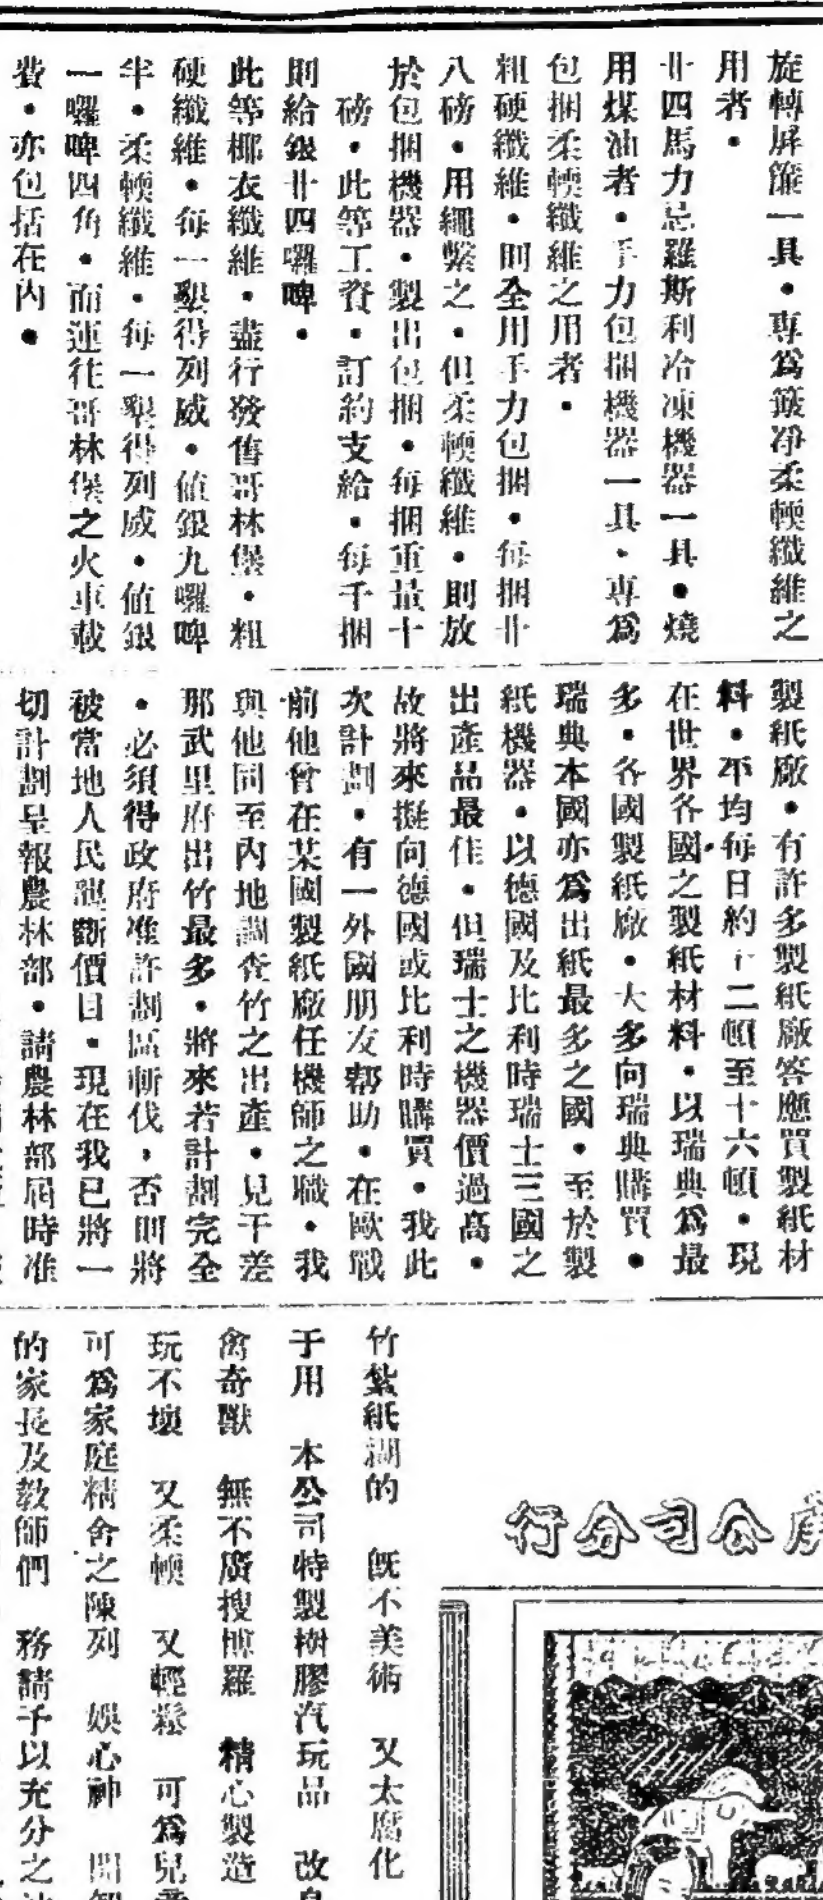 旋轉屏篩一具・專爲簸淨柔輭纖維之
用者・
卄四馬力忌羅斯利冷凍機器一具・燒
用煤油者・手力包捆機器一具・專爲
包捆柔輭纖維之用者・
粗硬纖維・則全用手力包捆・每捆卄
八磅・用繩繫之・但柔輭纖維・則放
於包捆機器・製出包捆・每捆重量十
磅・此等工資・訂約支給・每千捆
則給銀卄四囉啤・
此等椰衣纖維・盡行發售哥林堡・粗
硬纖維・每一墾得列威・値銀九囉啤
半・柔輭纖維・每一墾得列威・値銀
一囉啤四角・而運往哥林堡之火車載
費・亦包括在內・
製紙廠・有許多製紙廠答應買製紙材
料・平均每日約十二頓至十六頓・現
在世界各國之製紙材料・以瑞典爲最
多・各國製紙廠・大多向瑞典購買・
瑞典本國亦爲出紙最多之國・至於製
紙機器・以德國及比利時瑞士三國之
出產品最佳・但瑞士之機器價過高・
故將來擬向德國或比利時購買・我此
次計劃・有一外國朋友幇助・在歐戰
前他曾在某國製紙廠任機師之職・我
與他同至內地調查竹之出產・見干差
那武里府出竹最多・將來若計劃完全
・必須得政府准許劃區斬伐，否則將
被當地人民壟斷價目・現在我已將一
切計劃呈報農林部・請農林部屆時准
行分司公
竹紮紙湖的 旣不美術 又太腐化
于用 本公司特製樹膠汽玩品 改
禽奇獸 無不廣搜博羅 精心製造
玩不壞 又柔輭 又輕鬆 可爲兒
可爲家庭精舍之陳列 娛心神 開
的家長及敎師們 務請予以充分之